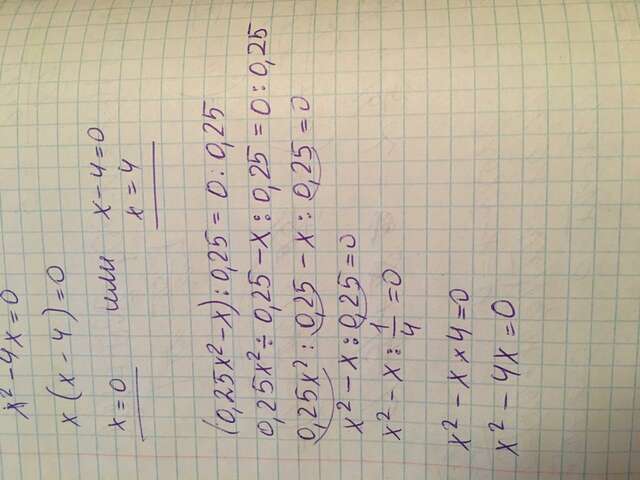 x² - 4x = 0
x(x - 4) = 0
x = 0 или x - 4 = 0
x = 4
(0,25x² - x) : 0,25 = 0 : 0,25
0,25x² ÷ 0,25 - x : 0,25 = 0 : 0,25
0,25x² : 0,25 - x : 0,25 = 0
x² - x : 0,25 = 0
x² - x : 1/4 = 0
x² - x × 4 = 0
x² - 4x = 0